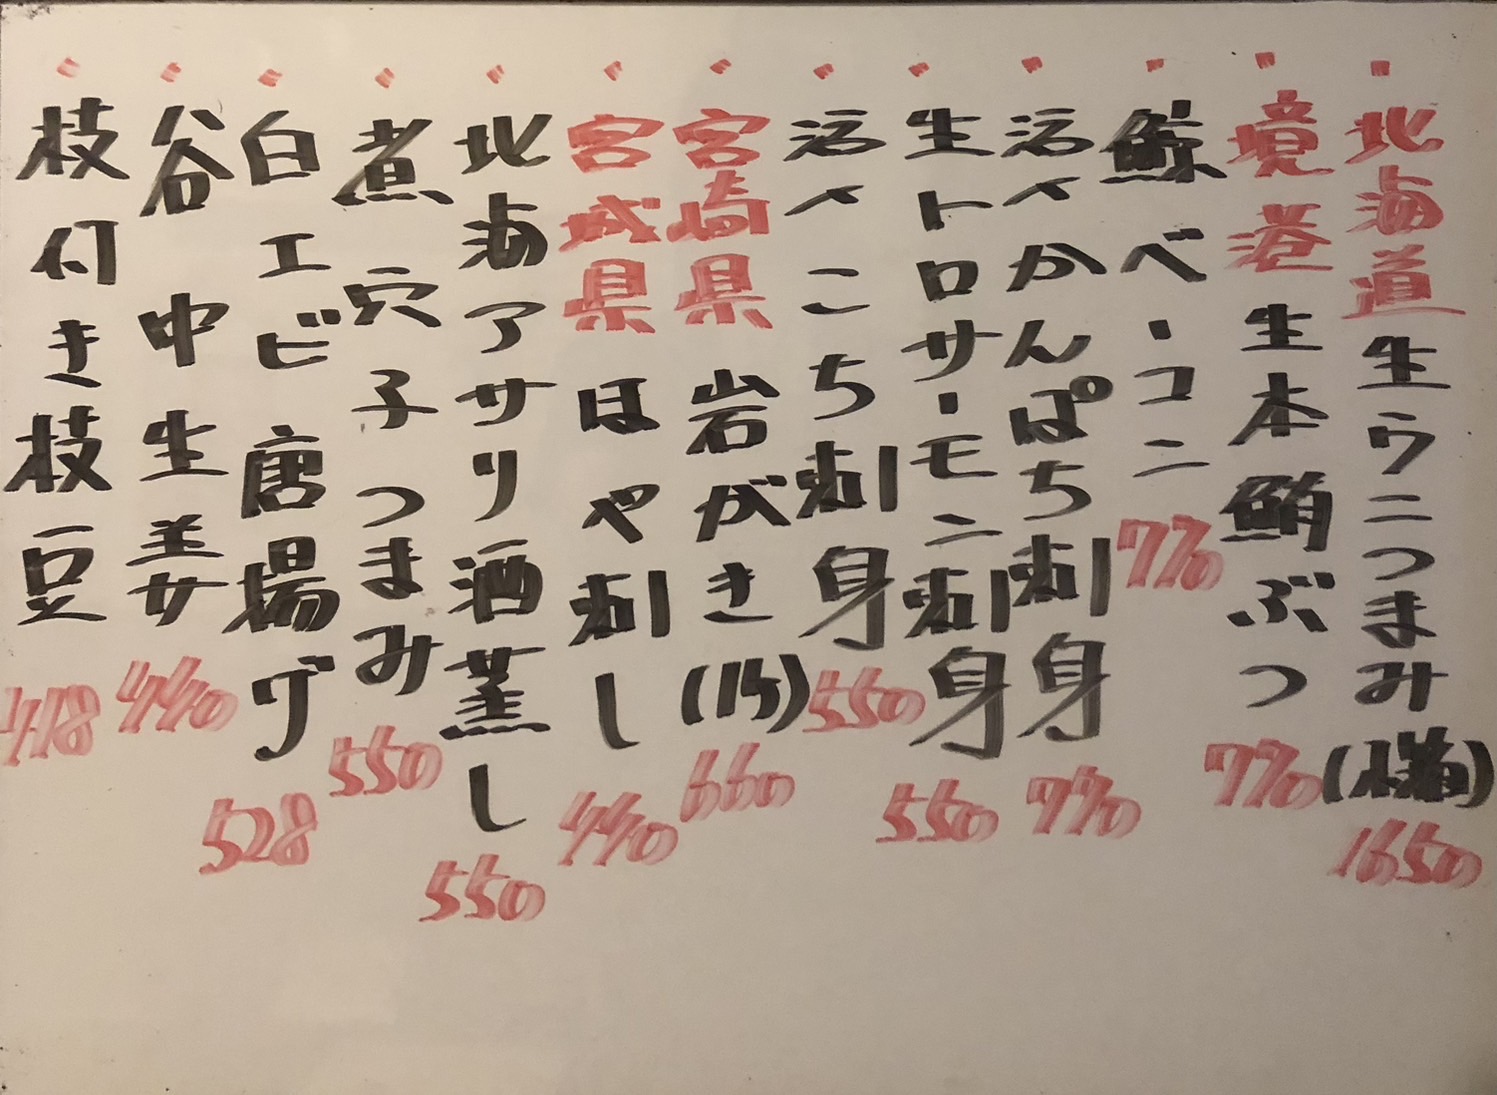 ・北海道生ウニつまみ 1650
・境港生本鮪ぶつ 770
・鯨ベーコン 770
・活〆かんぱち刺身 770
・生トロサーモン刺身 550
・活〆こち刺身 550
・宮崎県 岩がき 660
・宮城県 ほや刺し 440
・北海アサリ酒蒸し 550
・煮穴子つまみ 550
・白エビ唐揚げ 528
・谷中生姜 440
・枝付き枝豆 418